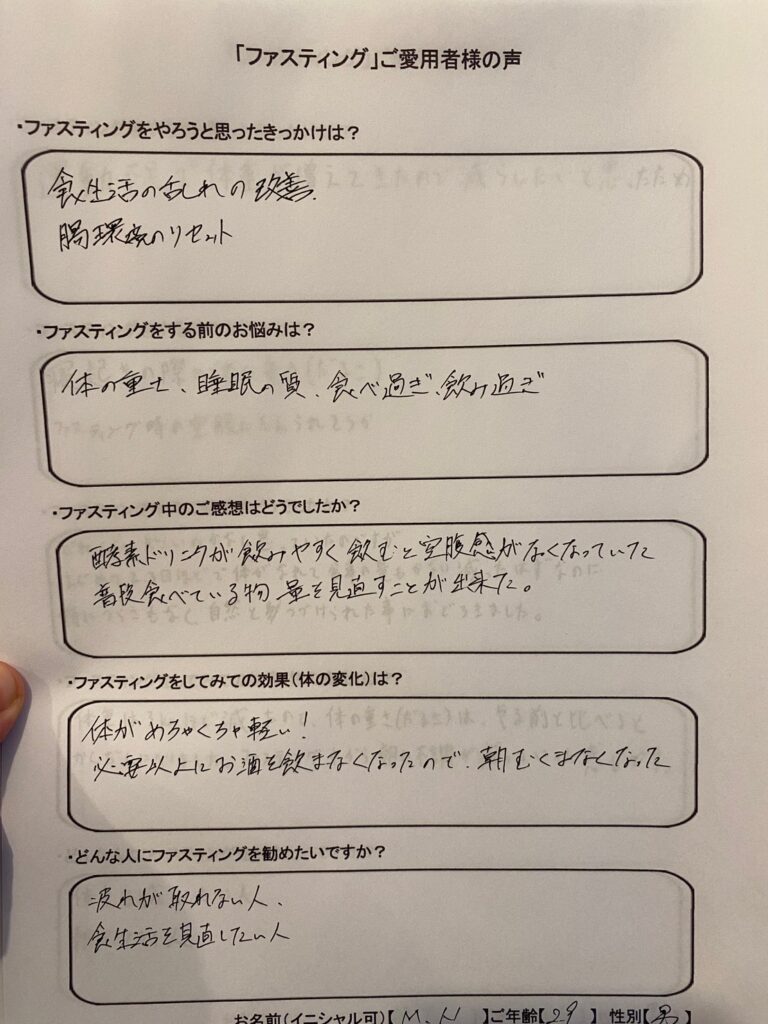 「ファスティング」ご愛用者様の声
・ファスティングをやろうと思ったきっかけは？
食生活の乱れの改善、
腸環境のリセット
・ファスティングをする前のお悩みは？
体の重さ、睡眠の質、食べ過ぎ、飲み過ぎ
・ファスティング中のご感想はどうでしたか？
酵素ドリンクが飲みやすく飲むと空腹感がなくなっていた
普段食べている物 量を見直すことが出来た。
・ファスティングをしてみての効果(体の変化)は？
体がめちゃくちゃ軽い！
必要以上にお酒を飲まなくなったので、朝むくまなくなった
・どんな人にファスティングを勧めたいですか？
疲れが取れない人、
食生活を見直したい人
お名前(イニシャル可)【 M.N 】ご年齢【 29 】 性別【 男 】